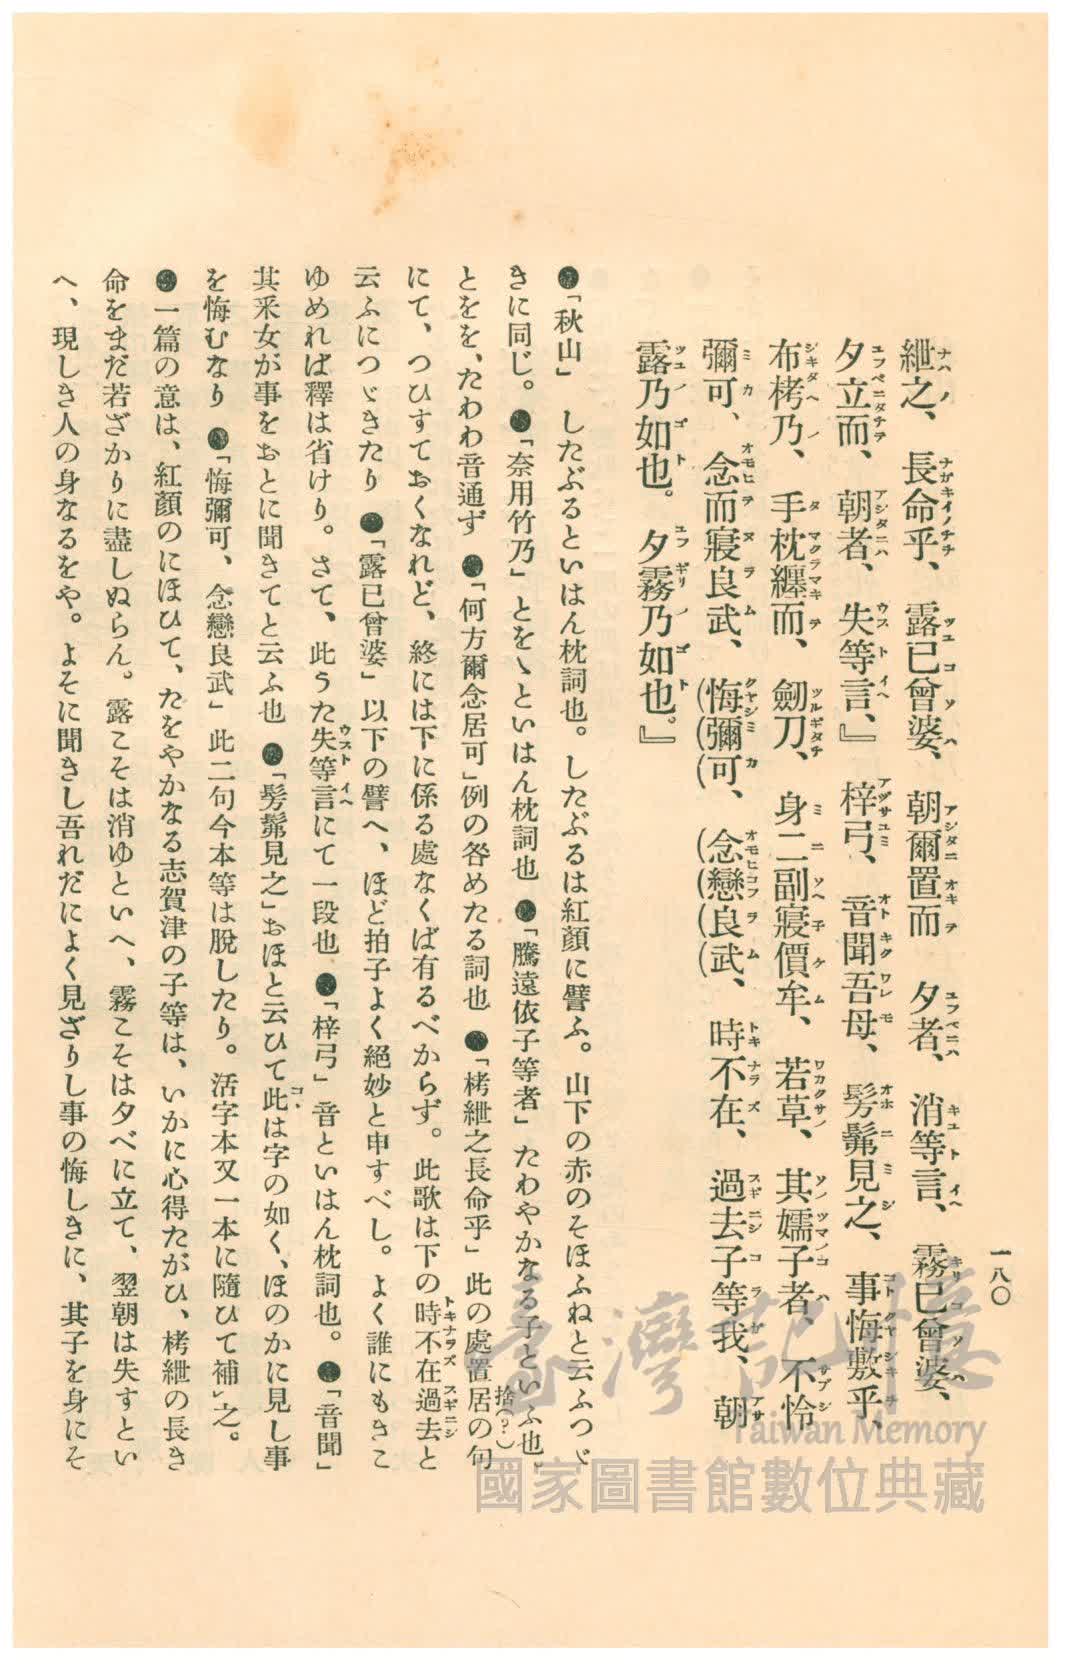 一八〇
紲之、長命乎、露已曾婆、朝爾置而 夕者、消等言、霧已曾婆、
夕立而、朝者、失等言、』梓弓、音聞吾母、髣髴見之、事悔敷乎、
布栲乃、手枕纏而、劒刀、身二副寢價牟、若草、其嬬子者、不怜
彌可、念而寢良武、(悔(彌(可、(念(戀(良(武、時不在、過去子等我、朝
露乃如也。夕霧乃如也。』
●「秋山」 したぶるといはん枕詞也。したぶるは紅顏に譬ふ。山下の赤のそほふねと云ふつゞ
きに同じ。●「奈用竹乃」とをゝといはん枕詞也 ●「騰遠依子等者」たわやかなる子といふ也。
とをを、たわわ音通ず ●「何方爾念居可」例の咎めたる詞也 ●「栲紲之長命乎」此の處置居の句
捨(?)
にて、つひすておくなれど、終には下に係る處なくば有るべからず。此歌は下の時不在過去と
云ふにつゞきたり ●「露已曾婆」以下の譬へ、ほど拍子よく絕妙と申すべし。よく誰にもきこ
ゆめれば釋は省けり。さて、此うた失等言にて一段也 ●「梓弓」音といはん枕詞也。●「音聞」
其釆女が事をおとに聞きてと云ふ也 ●「髣髴見之」おほと云ひて此は字の如く、ほのかに見し事
を悔むなり ●「悔彌可、念戀良武」此二句今本等は脫したり。活字本又一本に隨ひて補ㇾ之。
●一篇の意は、紅顏のにほひて、たをやかなる志賀津の子等は、いかに心得たがひ、栲紲の長き
命をまだ若ざかりに盡しぬらん。露こそは消ゆといへ、霧こそは夕べに立て、翌朝は失すとい
へ、現しき人の身なるをや。よそに聞きし吾れだによく見ざりし事の悔しきに、其子を身にそ
臺灣記憶
Taiwan Memory
國家圖書館數位典藏